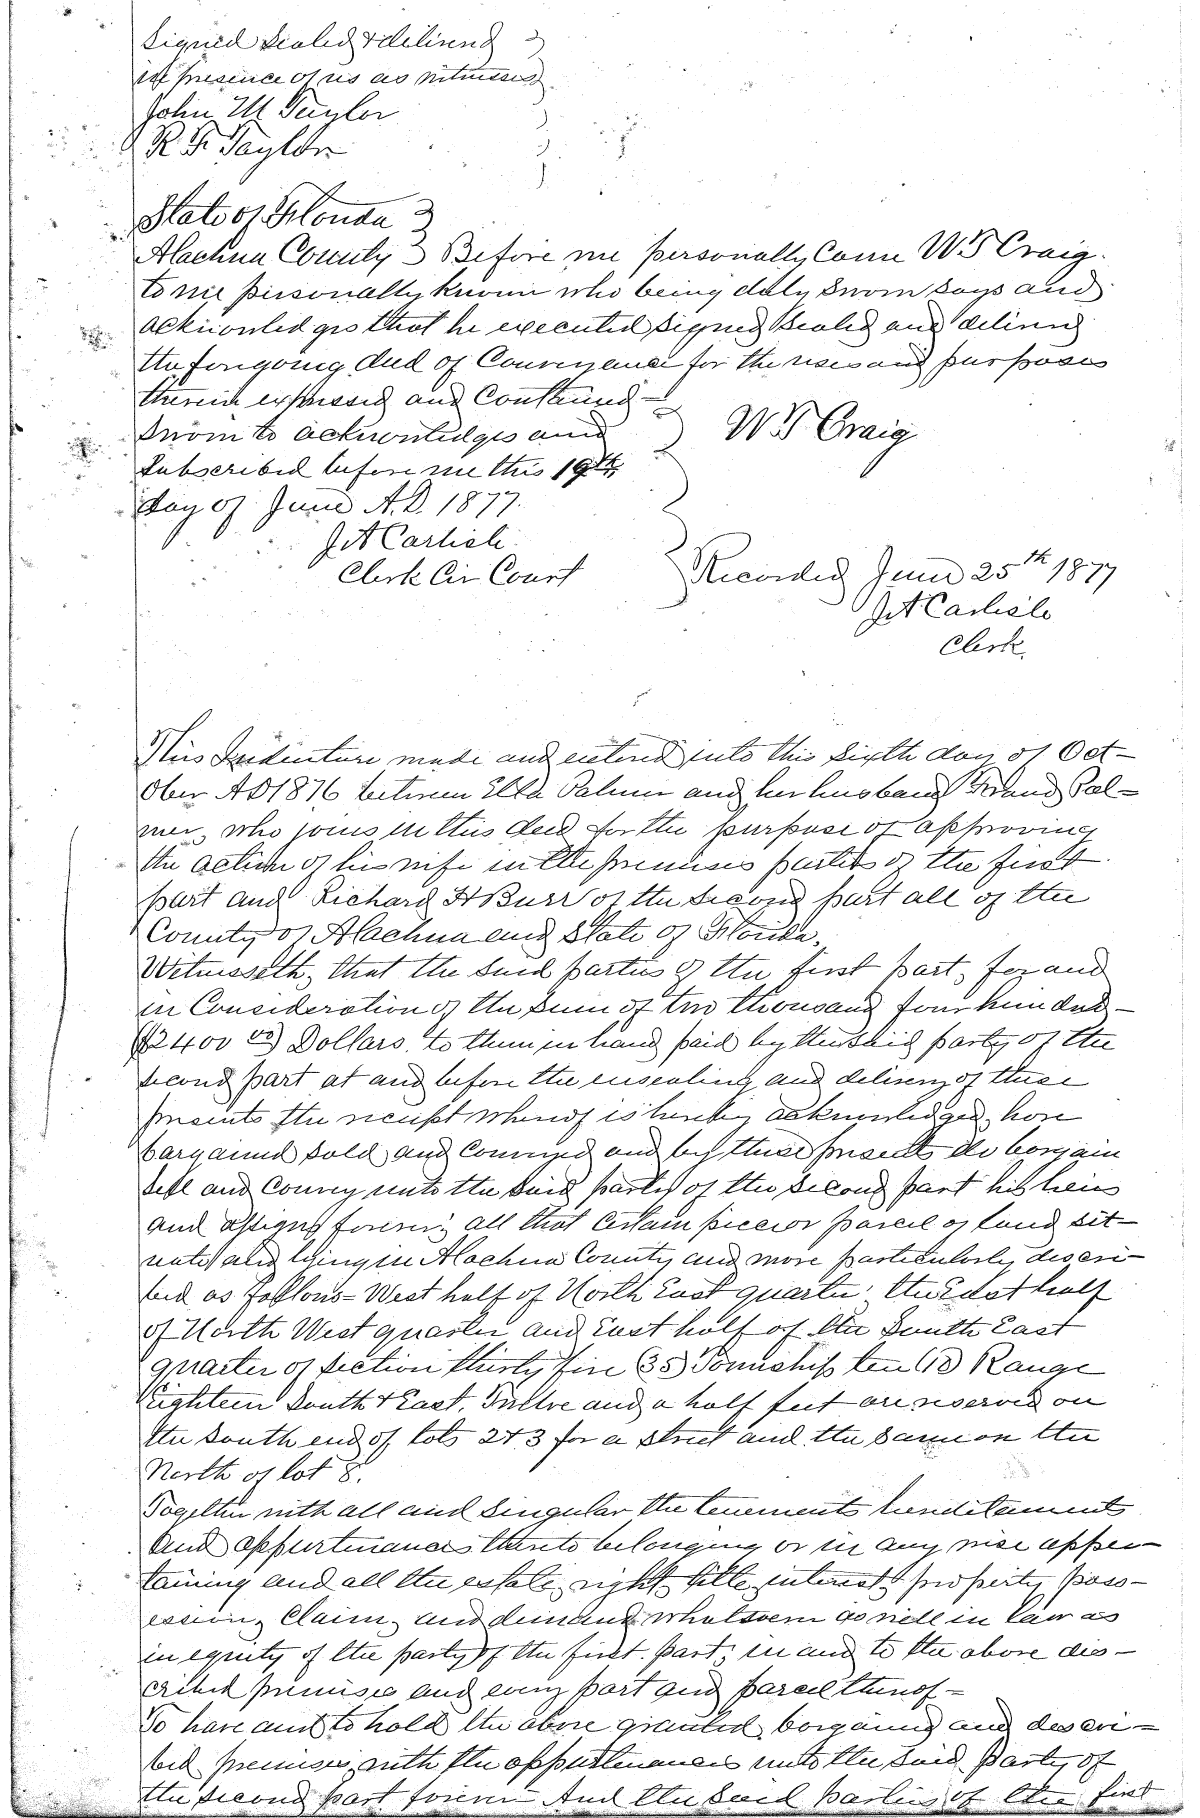 Signed Sealed & delivered
in presence of us as witnesses
John M Taylor
R. F. Taylor
State of Florida
Alachua County Before me personally Came W S Craig.
to me personally known who being duly Sworn Says and
acknowledges that he executed Signed Sealed and delivered
the foregoing deed of Conveyance for the uses and purposes
therein expressed and Contained -
Sworn to acknowledges and W S Craig
Subscribed before me this 19th
day of June A.D. 1877.
J A Carlisle
Clerk Cir Court Recorded June 25th 1877
J A Carlisle
Clerk.
This Indenture made and entered into this Sixth day of Oct-
ober AD 1876 between Ella Palmer and her husband Pal-
mer, who joins in this deed for the purpose of approving
the action of his wife in the premises parties of the first
part and Richard H Burr of the Second part all of the
County of Alachua and State of Florida.
Witnesseth, that the Said parties of the first part, for and
in Consideration of the Sum of two thousand four hundred-
($2400 00) Dollars. to them in hand paid by the Said party of the
Second part at and before the ensealing and delivery of these
presents the receipt whereof is hereby acknowledged, have
bargained Sold and Conveyed and by these presents do bargain
Sell and Convey unto the Said party of the Second part his heirs
and assigns forever; all that Certain piece or parcel of land sit-
uate and lying in Alachua County and more particularly descri-
bed as follows = West half of North East quarter, the East half
of North West quarter and East half of the South East
quarter of Section thirty five (35) Township ten (10) Range
Eighteen South & East, Twelve and a half feet are reserved on
the South end of lots 2 & 3 for a Street and the Same on the
North of lot 8.
Together with all and Singular the tenements hereditaments
and appurtenances thereto belonging or in any wise apper-
taining and all the estate, right, title interest, property, poss-
ession, Claim, and demand whatsoever as well in law as
in equity of the party of the first. part, in and to the above des-
cribed premises and every part and parcel thereof -
To have and to hold the above granted, bargained and descri-
bed premises, with the appurtenances unto the Said Party of
the Second part forever And the Said parties of the first